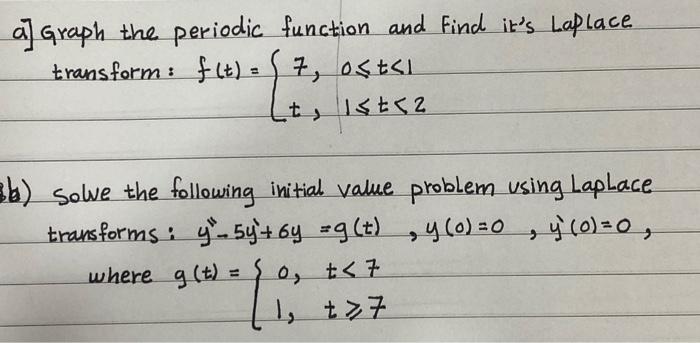 a] Graph the periodic function and Find it's Laplace
transform: f(t) = { 7, 0≤t<1
t, 1≤t<2
b) Solve the following initial value problem using Laplace
transforms: y'' - 5y' + 6y = g(t) , y(0)=0 , y'(0)=0 ,
where g(t) = { 0, t<7
1, t≥7